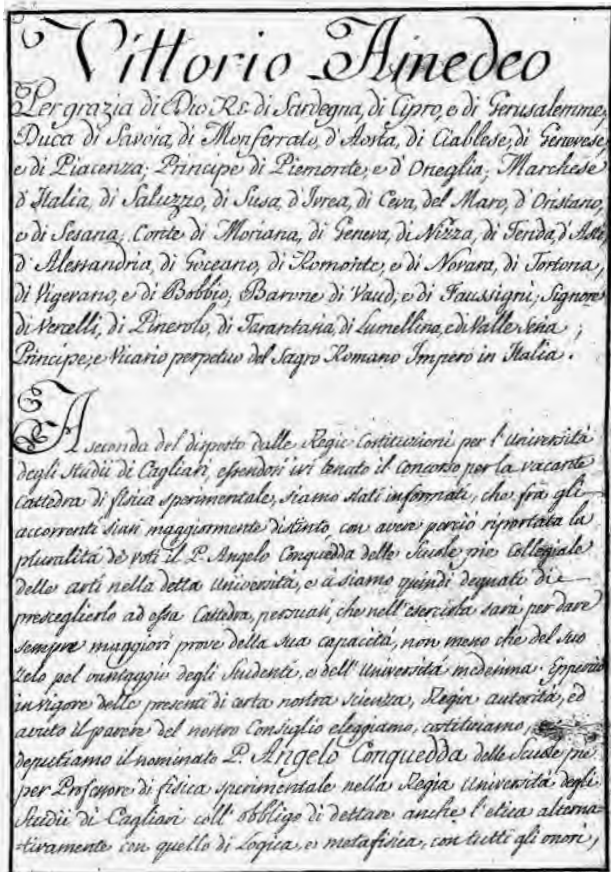 Vittorio Amedeo
Per grazia di Dio Re di Sardegna, di Cipro, e di Gerusalemme,
Duca di Savoia, di Monferrato, d'Aosta, di Ciablese, di Genevese,
e di Piacenza; Principe di Piemonte, e d'Oneglia; Marchese
d'Italia, di Saluzzo, di Susa, d'Ivrea, di Ceva, del Maro, d'Oristano,
e di Sesana; Conte di Moriana, di Geneva, di Nizza, di Tenda, d'Asti,
d'Alessandria, di Goceano, di Romonte, e di Novara, di Tortona,
di Vigevano, e di Bobbio; Barone di Vaud, e di Faussigni; Signore
di Vercelli, di Pinerolo, di Tarantasia, di Lumellina, e di Valle Sesia;
Principe, e Vicario perpetuo del Sagro Romano Impero in Italia.
A seconda del disposto dalle Regie Costituzioni per l'Università
degli Studii di Cagliari, essendosi ivi tenuto il Concorso per la vacante
Cattedra di fisica sperimentale, siamo stati informati, che frà gli
accorrenti siasi maggiormente distinto, con avere perciò riportata la
pluralità de voti il P. Angelo Conquedda delle Scuole pie Collegiale
delle arti nella detta Università, e ci siamo quindi degnati di
presceglierlo ad essa Cattedra, persuasi, che nell'esercirla sarà per dare
sempre maggiori prove della sua capacità, non meno che del suo
zelo pel vantaggio degli Studenti, e dell'Università medesima. Epperciò
in vigore delle presenti di certa nostra scienza, Regia autorità, ed
avuto il parere del nostro Consiglio eleggiamo, costituiamo,
deputiamo il nominato P. Angelo Conquedda delle Scuole pie
per Professore di fisica sperimentale nella Regia Università degli
Studii di Cagliari coll'obbligo di dettare anche l'etica alterna-
tivamente con quello di Logica, e metafisica, con tutti gli onori,